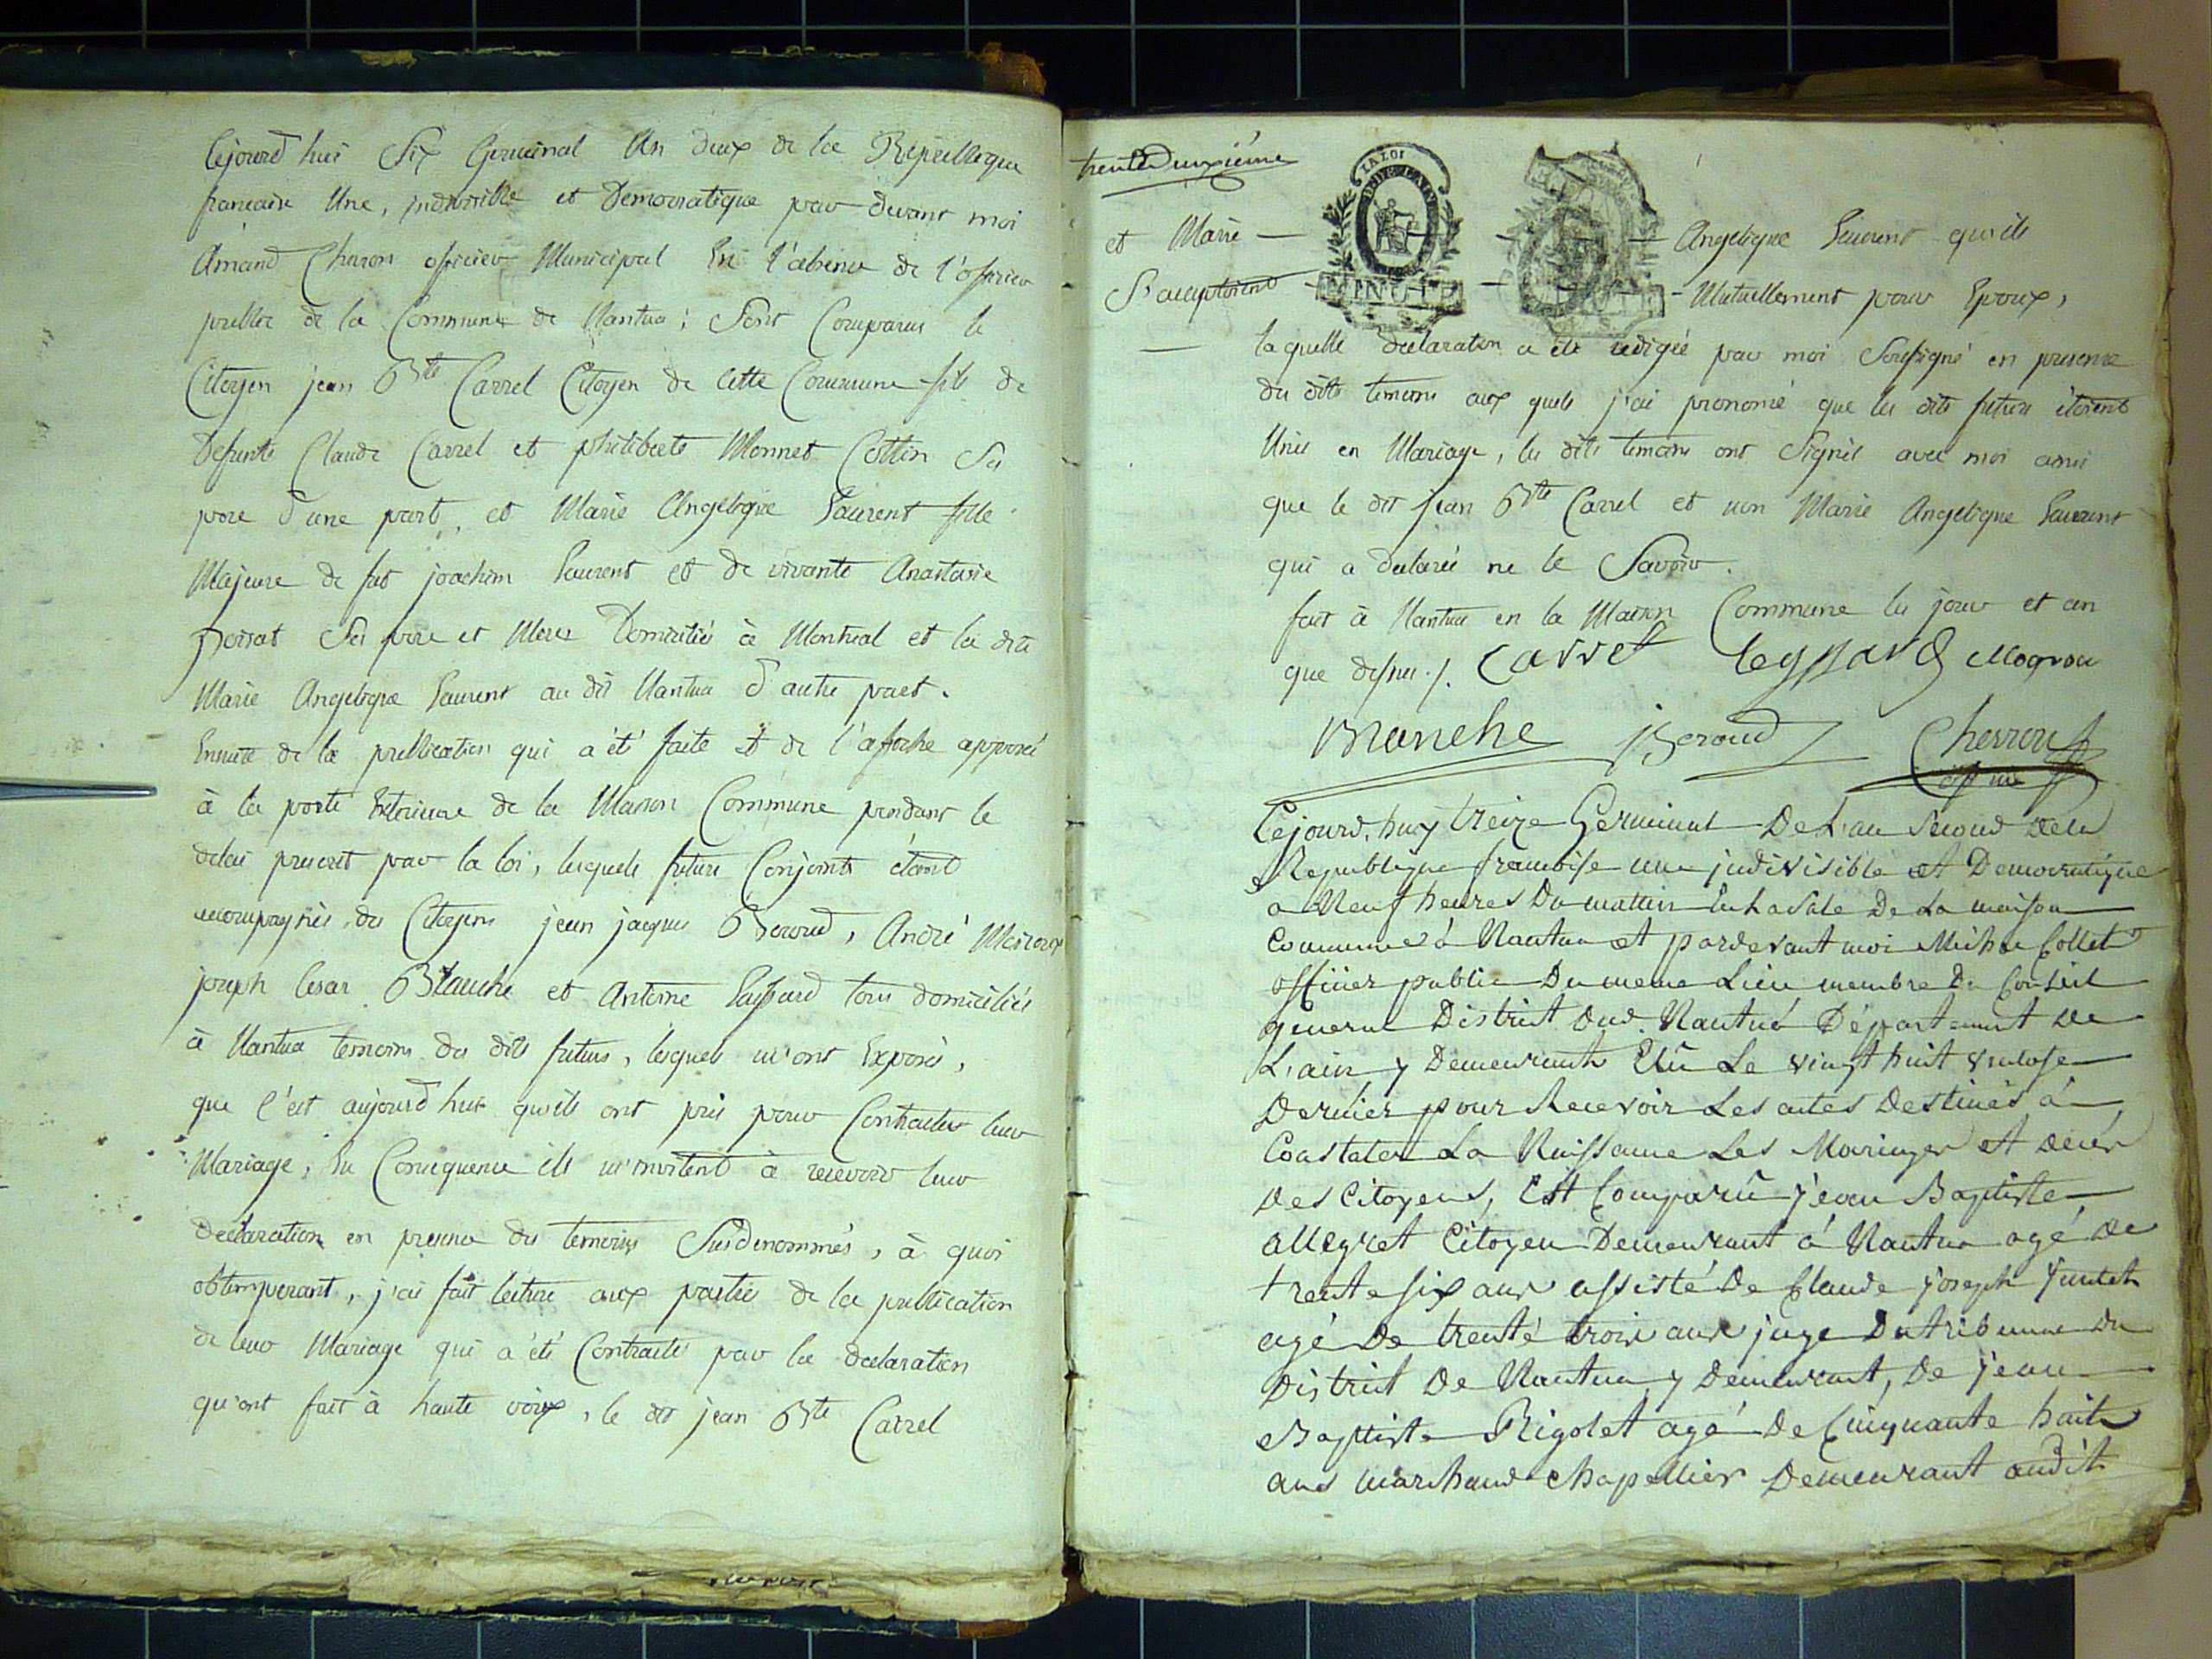 Cejourd'hui Six Germinal An deux de la Republique
francaise Une, indivisible et Democratique par devant moi
Amand Cheron officier Municipal En l'absence de l'officier
public de la Commune de Nantua; Sont Comparus le
Citoyen jean Bte Carrel Citoyen de Cette Commune fils de
Defunts Claude Carrel et philiberte Monnet Cottin Ses
pere d'une part, et Marie Angelique Laurent fille
Majeure de fut joachim Laurent et de vivante Anastasie
poisat Ses pere et Mere Domiciliés à Montreal et la dite
Marie Angelique Laurent au dit Nantua d'autre part.
Ensuite de la publication qui a été faite et de l'afiche apposée
à la porte Exterieure de la Maison Commune pendant le
delai prescrit par la loi, lesquels futurs Conjoints étant
accompagnés des Citoyens jean jacques Beroud, André
joseph Cesar Blanche et Antoine Laissard tous domiciliés
à Nantua temoins des dits futurs, lesquels m'ont Exposés,
que C'est aujourd'hui qu'ils ont pris pour Contracter leur
Mariage, En Consequence ils m'invitent à recevoir leur
declaration en presence des temoins Susdenommés, à quoi
obtemperant, j'ai fait lecture aux parties de la publication
de leur Mariage qui a été Contracté par la declaration
qu'ont fait à haute voix, le dit jean Bte Carrel
trente Deuxiéme
LA LOI
DEP. DE L'AIN
MINUTE
et Marie — Angelique Laurent qu'ils
S'acceptoient — Mutuellement pour Epoux,
laquelle declaration a été redigée par moi Soussigné en presence
des dits temoins aux quels j'ai prononcé que les dits futurs étoient
Unis en Mariage, les dits temoins ont Signés avec moi ainsi
que le dit jean Bte Carrel et non Marie Angelique Laurent
qui a declarée ne le Savoir.
fait à Nantua en la Maison Commune les jour et an
que dessus ./. Carrel
Blanche jBeroud Cherron
off mu
Cejourd'huy treize Germinal De L'an Second dela
Republique francoise une indivisible et Democratique
a Neuf heures Du mattin En La Sale De La maison
Commune à Nantua et pardevant moi Michel Collet
officier public Du meme Lieu membre Du Conseil
general District dud. Nantua Département de
L'ain y Demeurant Elû Le vingt huit vendose
Dernier pour Recevoir Les actes Destinés à
Constater La Naissance Les Mariages et décés
des Citoyens, Est Comparû jean Baptiste
allegret Citoyen Demeurant à Nantua agé de
trente six ans assisté De Claude joseph
agé De trente trois ans juge Du tribunal du
District De Nantua y Demeurant, De jean
Baptiste Rigolet agé De Cinquante huit
ans marchand chapellier Demeurant audit